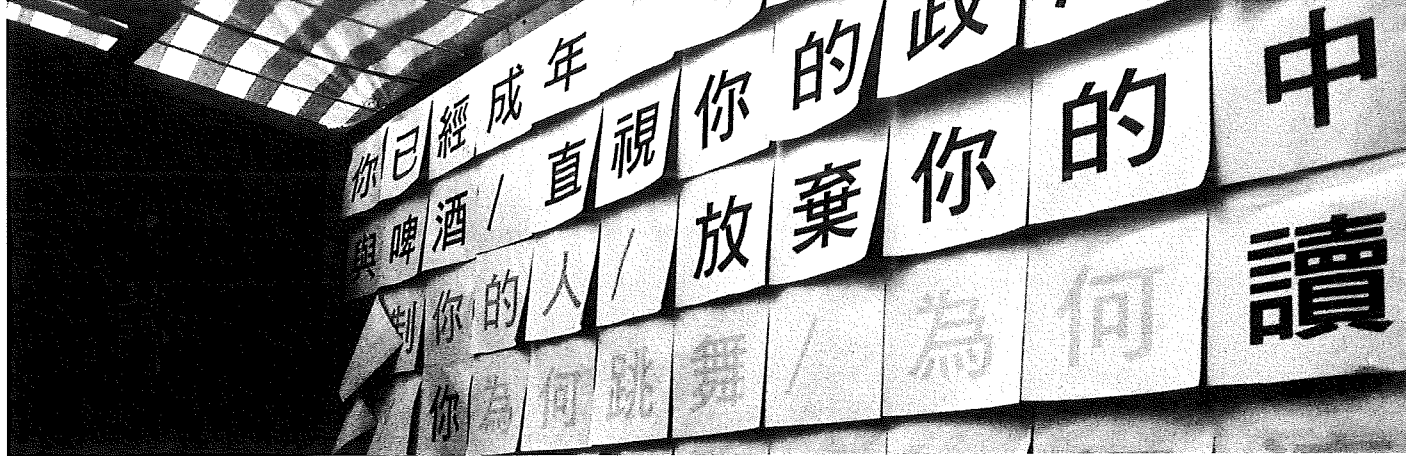 你已經成年
與啤酒/直視你的政
制你的人/放棄你的中
你為何跳舞/為何讀